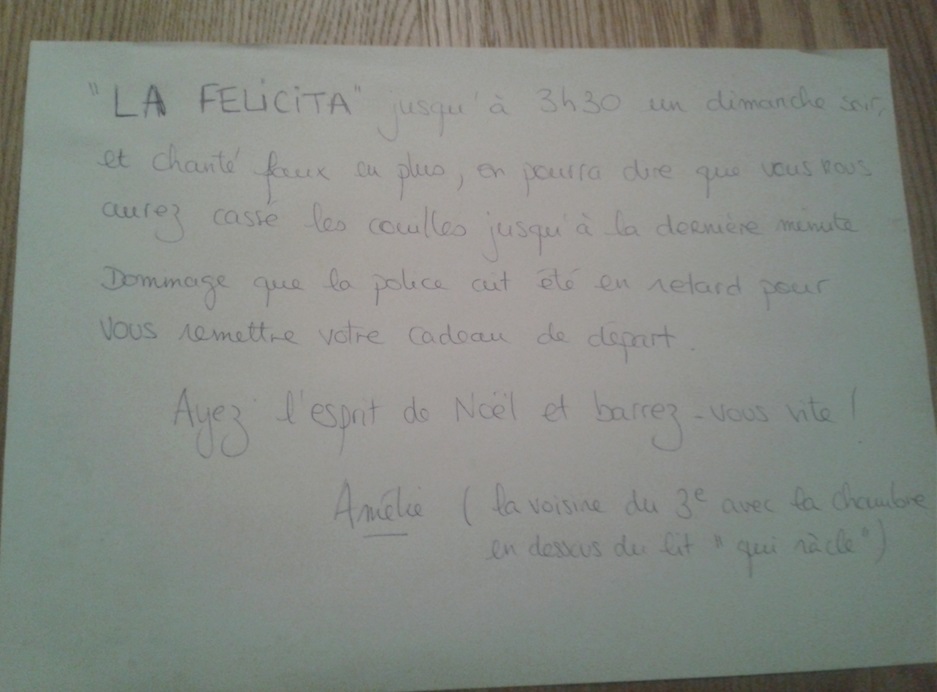 "LA FELICITA" jusqu'à 3h30 un dimanche soir,
et chanté faux en plus, on pourra dire que vous nous
aurez cassé les couilles jusqu'à la dernière minute
Dommage que la police ait été en retard pour
vous remettre votre cadeau de départ.
Ayez l'esprit de Noël et barrez-vous vite !
Amélie (la voisine du 3e avec la chambre
en dessous du lit "qui râcle")